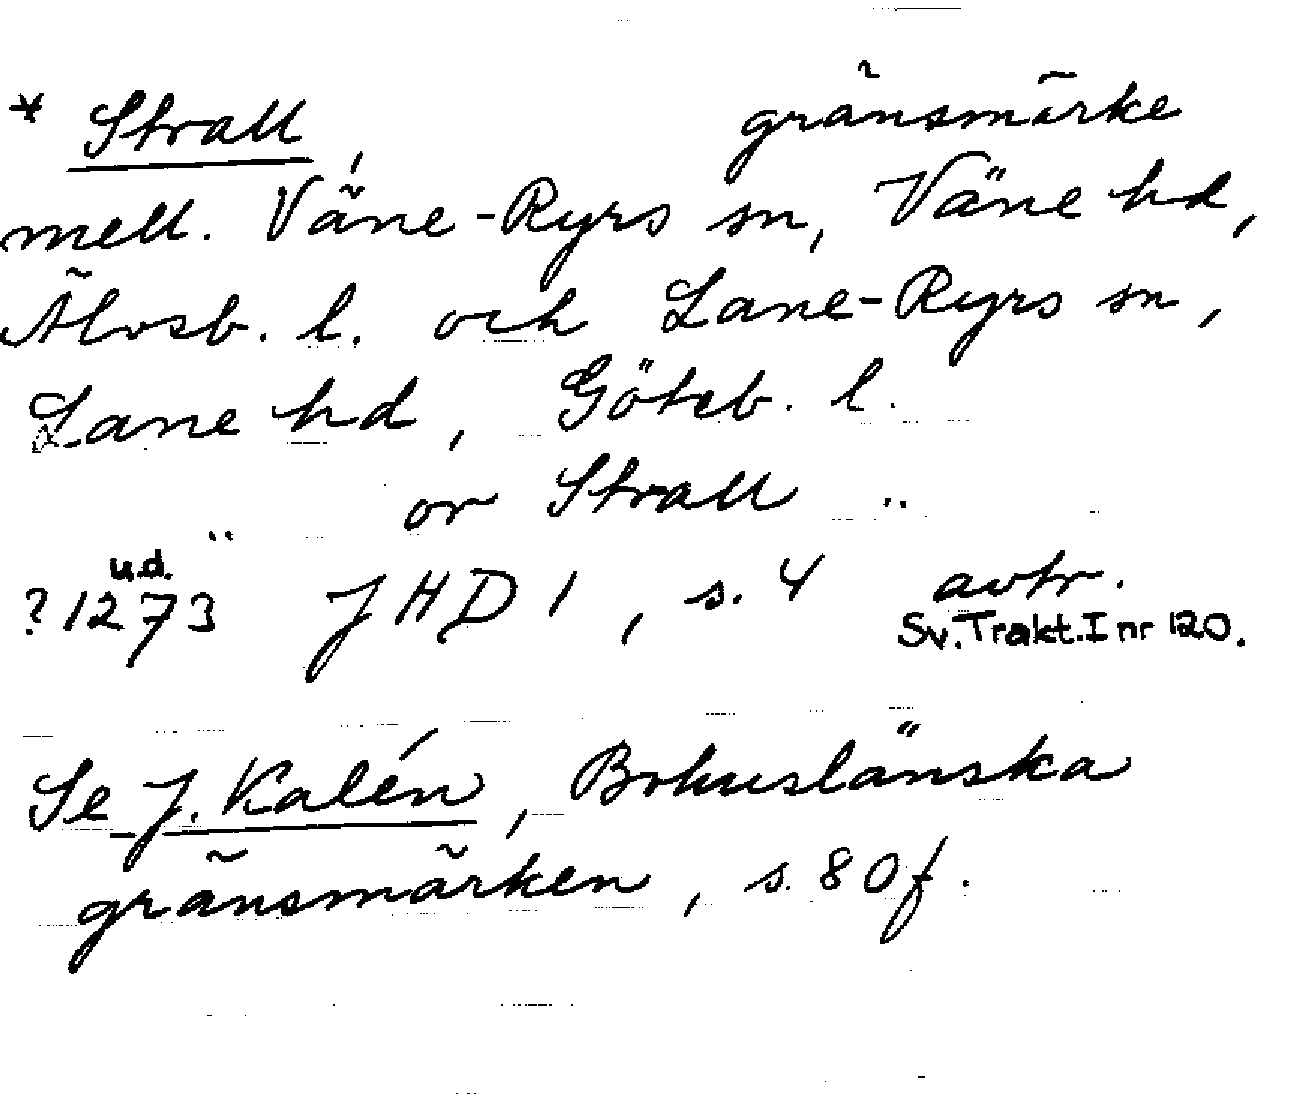 * Strall, gränsmärke
mell. Väne-Ryrs sn, Väne hd,
Älvsb. l. och Lane-Ryrs sn,
Lane hd, Göteb. l.
" or Strall "
u.d.
?1273 JHD 1, s. 4 avtr.
Sv. Trakt. I nr 120.
Se J. Kalén, Bohuslänska
gränsmärken, s. 80 f.